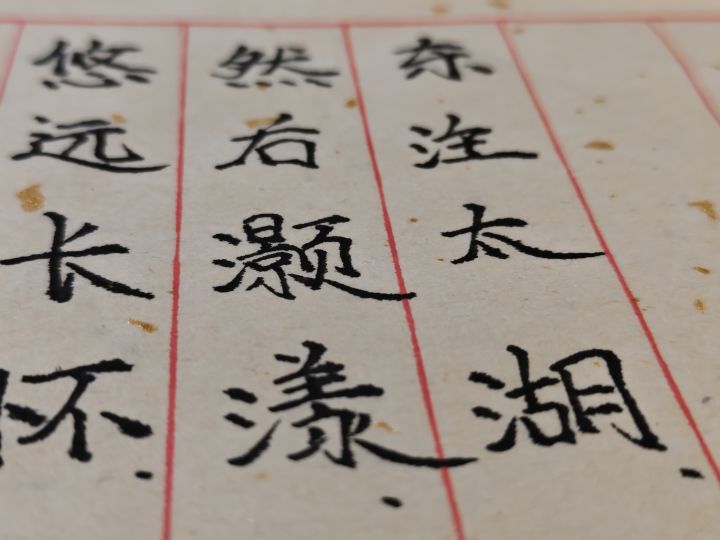 东注太湖.
然右灏漾.
悠远长怀.